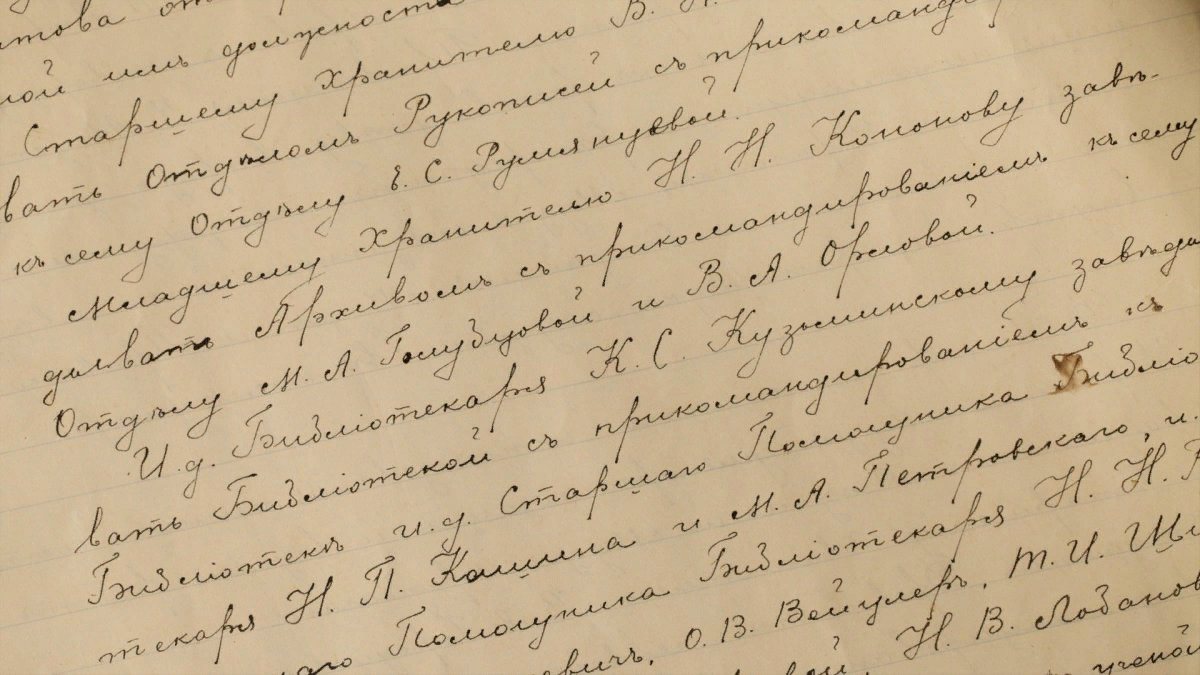 ной имъ должности
Старшему Хранителю В.
вать Отдѣломъ Рукописей съ прикоманди
къ сему Отдѣлу Е. С. Румянцевой.
Младшему Хранителю Н. Н. Кононову завѣ-
дывать Архивомъ съ прикомандированіемъ къ сему
Отдѣлу М. А. Голубцовой и В. А. Орловой.
И. д. Библіотекаря К. С. Кузьминскому завѣды
вать Библіотекой съ прикомандированіемъ къ
Библіотекѣ и. д. Старшаго Помощника Библіо
текаря Н. П. Кашина и М. А. Петровскаго, и.
аго Помощника Библіотекаря Н. Н.
евичъ, О. В. Вейцлеръ, Т. И. Щи
вой Н. В. Лобанов
ученой